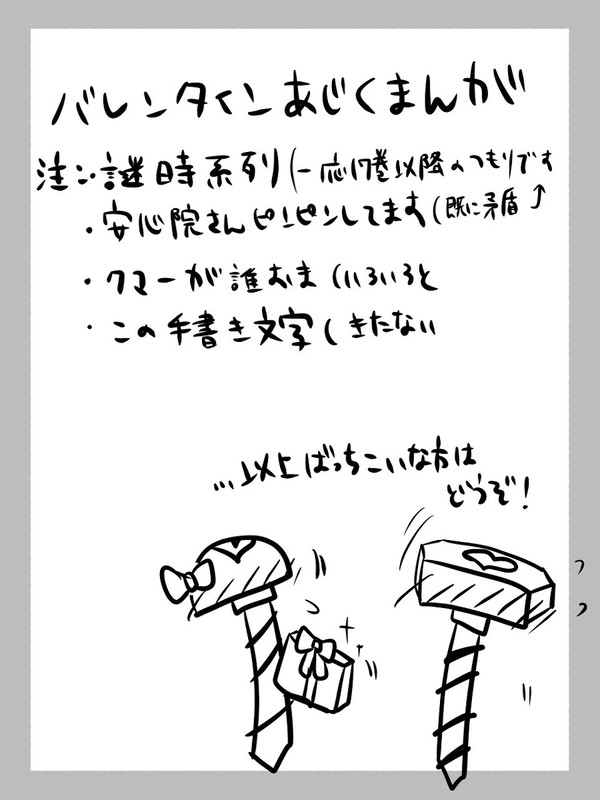 バレンタインあじくまんが
注:謎時系列(一応17巻以降のつもりです
・安心院さんピンピンしてます(既に矛盾↑
・クマーが誰おま(いろいろと
・この手書き文字(きたない
…以上ばっちこいな方は
どうぞ!